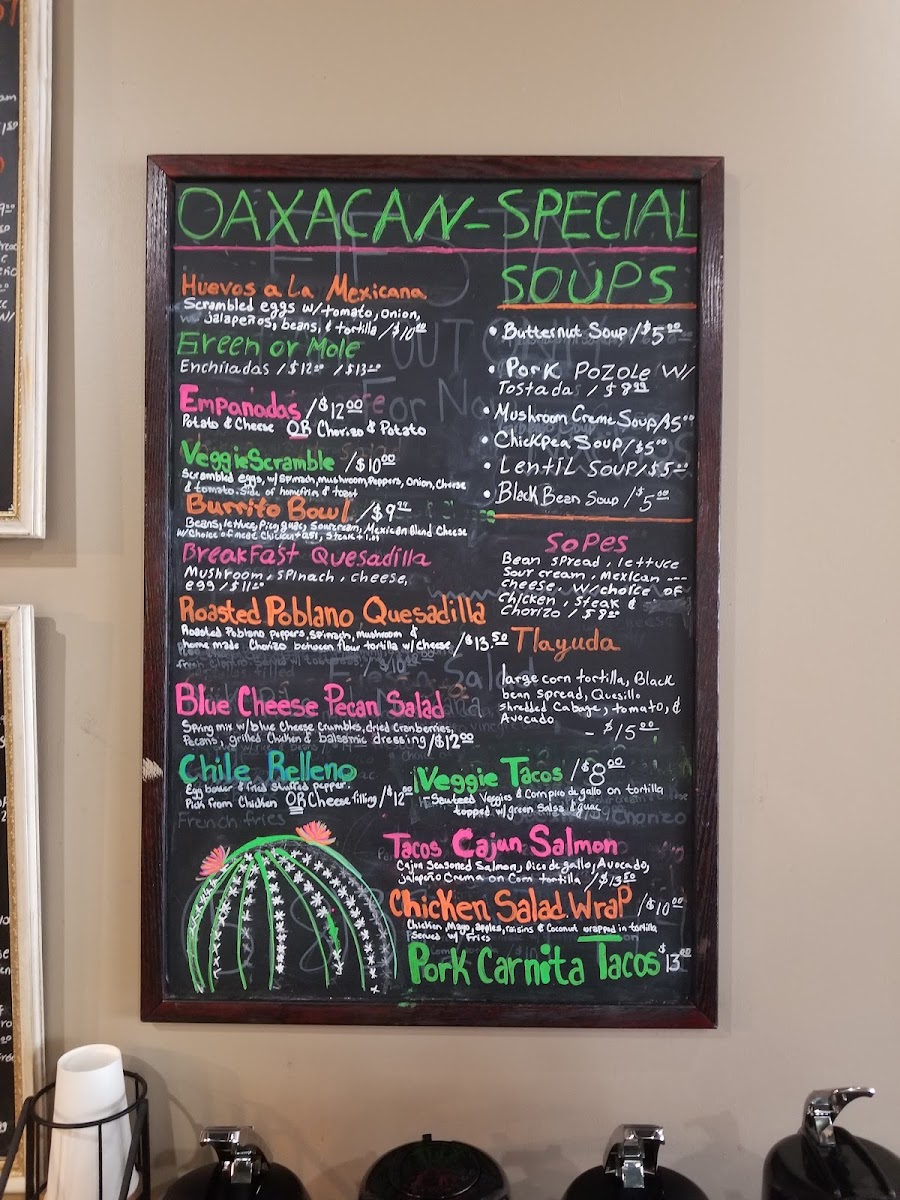 OAXACAN-SPECIAL
Huevos a La Mexicana
Scrambled eggs w/tomato, onion,
jalapeños, beans, & tortilla /$10.00
Green or Mole
Enchiladas /$12.00 /$13.00
Empanadas /$12.00
Potato & Cheese OR Chorizo & Potato
Veggie Scramble /$10.00
Scrambled eggs, w/spinach, mushroom, Peppers, Onion, Cheese
& tomato. Side of homefries & toast
Burrito Bowl /$9.99
Beans, lettuce, Pico, guac, sour cream, Mexican Blend Cheese
w/choice of meat Chicken
BreakFast Quesadilla
Mushroom, spinach, cheese,
egg /$11.00
Roasted Poblano Quesadilla
Roasted Poblano Peppers, spinach, mushroom &
home made Chorizo between flour tortilla w/cheese /$13.50
Blue Cheese Pecan Salad
Spring mix w/blue Cheese Crumbles, dried Cranberries,
Pecans, grilled Chicken & balsamic dressing /$12.00
Chile Relleno
Egg batter & fried stuffed pepper.
Pick from Chicken OR Cheese filling /$12.00
French fries
SOUPS
• Butternut Soup /$5.00
• Pork Pozole w/
Tostadas /$8.99
• Mushroom Creme Soup /$5.00
• Chickpea Soup /$5.00
• Lentil Soup /$5.00
• Black Bean Soup /$5.00
Sopes
Bean spread, lettuce
Sour cream, Mexican ---
cheese, w/choice of
Chicken, steak &
Chorizo /$8.00
Tlayuda
large corn tortilla, Black
bean spread, Quesillo
shredded Cabage, tomato, &
Avocado
- $15.00
Veggie Tacos /$8.00
Sauteed Veggies & Corn pico de gallo on tortilla
topped w/green Salsa & guac
Tacos Cajun Salmon
Cajun Seasoned Salmon, Pico de gallo, Avocado,
jalapeño Crema on Corn tortilla /$13.50
Chicken Salad Wrap /$10.00
Chicken, Mayo, apples, raisins & Coconut wrapped in tortilla
Served w/ Fries
Pork Carnita Tacos $13.00